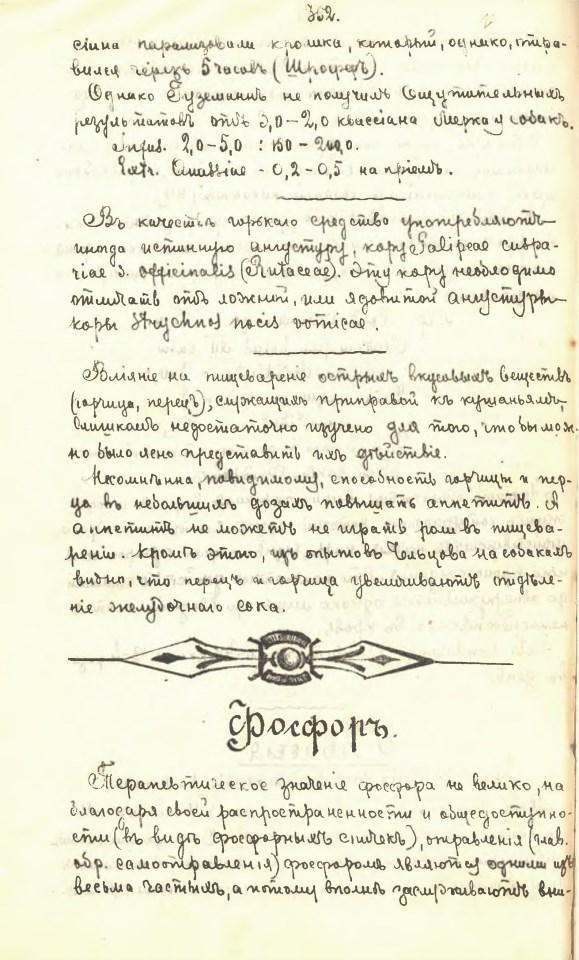 352.
сіина парализовали кролика, который, однако, опра-
вился чрезъ 5 часовъ (Шроффъ).
Однако Гуземаннъ не получилъ ощутительныхъ
результатовъ отъ 1,0–2,0 квассіина Мерка у собакъ.
Infus. 2,0–5,0 : 150 – 200,0.
Extr. Quassiae – 0,2–0,5 на пріемъ.
Въ качествѣ горькаго средства употребляютъ
иногда истинную ангустуру, кору Galipeae cuspa-
riae s. officinalis (Rutaceae). Эту кору необходимо
отличать отъ ложной, или ядовитой ангустуры
коры Strychnos nucis vomicae.
Вліяніе на пищевареніе острыхъ вкусовыхъ веществъ
(горчица, перецъ), служащихъ приправой къ кушаньямъ,
слишкомъ недостаточно изучено для того, чтобы мож-
но было ясно представить ихъ дѣйствіе.
Несомнѣнна, повидимому, способность горчицы и пер-
ца въ небольшихъ дозахъ повышать аппетитъ. А
аппетитъ не можетъ не играть роли въ пищева-
реніи. Кромѣ этого, изъ опытовъ Чельцова на собакахъ
видно, что перецъ и горчица увеличиваютъ отдѣле-
ніе желудочнаго сока.
Фосфоръ.
Терапевтическое значеніе фосфора не велико, но
благодаря своей распространенности и общедоступно-
сти (въ видѣ фосфорныхъ спичекъ), отравленія (глав.
обр. самоотравленія) фосфоромъ являются одними изъ
весьма частыхъ, а потому вполнѣ заслуживаютъ вни-